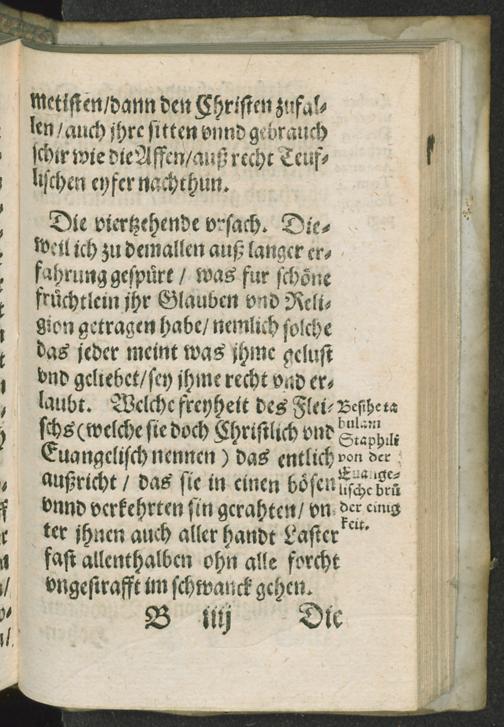 metisten/dann den Christen zufal-
len/auch jhre sitten vnnd gebrauch
schir wie die Affen/auß recht Teuf-
lischen eyfer nachthun.
Die viertzehende vrsach. Die-
weil ich zu dem allen auß langer er-
fahrung gespürt / was fur schöne
früchtlein jhr Glauben vnd Reli-
gion getragen habe/nemlich solche
das jeder meint was jhme gelust
vnd geliebet/sey jhme recht vnd er-
laubt. Welche freyheit des Flei-
schs (welche sie doch Christlich vnd
Euangelisch nennen) das entlich
außricht / das sie in einen bösen
vnnd verkehrten sin gerahten/ vn-
ter jhnen auch aller handt Laster
fast allenthalben ohn alle forcht
vngestrafft im schwanck gehen.
Besihe ta
bulam
Staphili
von der
Euange-
lische brü
der einig
keit.
B iiij Die